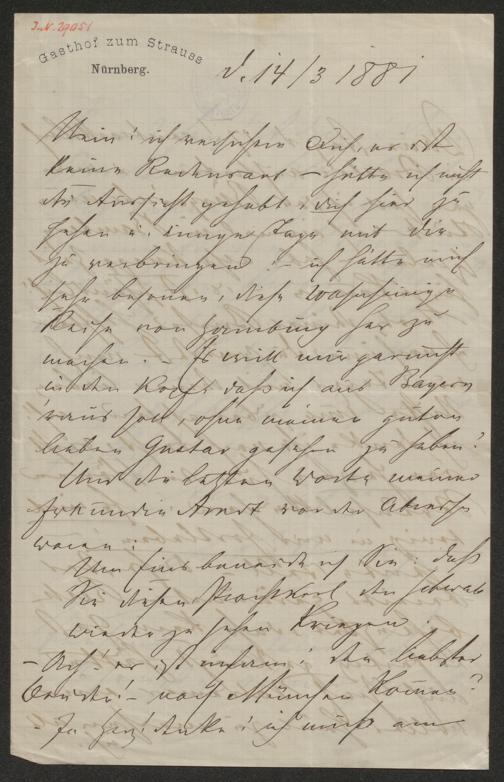 I.N. 29051
Gasthof zum Strauss
Nürnberg.
d. 14/3 1881
Nein! ich versichere Dich, es ist
keine Redensart – hätte ich nicht
die Aussicht gehabt, dich hier zu
sehen u. einige Tage mit dir
zu verbringen – ich hätte mich
sehr besonnen, diese wahnsinnige
Reise von Hamburg her zu
machen. – Es will mir garnicht
in den Kopf, daß ich aus Bayern
'raus soll, ohne meinen guten
lieben Gustav gesehen zu haben!
Und die letzten Worte meiner
Freundin Arndt vor der Abreise
waren:
Um Eins beneide ich Sie: daß
Sie diesen Prachtkerl den
wieder zu sehen kriegen.
– Ach! es ist infam! du liebster
Bruder! – nach München kommen?
– Ja Herz! danke! ich muß am